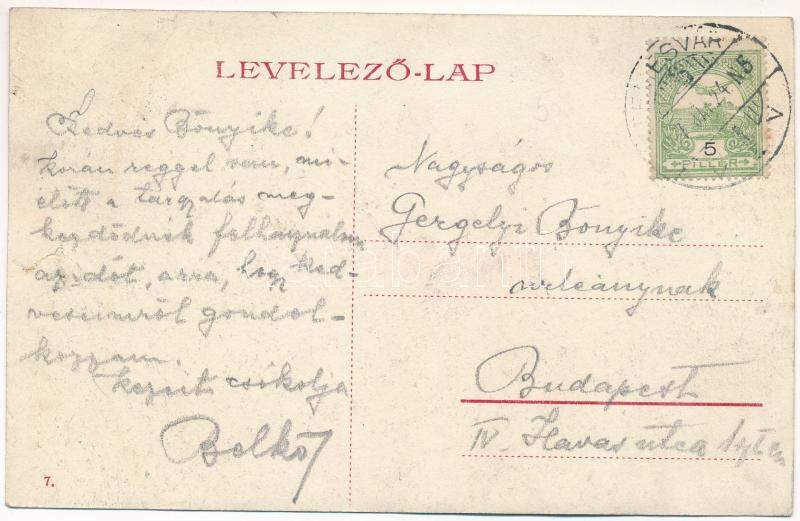 LEVELEZŐ-LAP
Kedves Bönyike!
korán reggel van, mi-
előtt a tárgyalás meg-
kezdődnék felhasználom
az időt, arra, hogy ked-
veseimről gondol-
kozzam.
kezeit csókolja
Belkő
7.
Nagyságos
Gergelyi Bönyike
urleánynak
Budapest
IV. Havas utca
TEMESVÁR
5
FILLÉR
darabanth